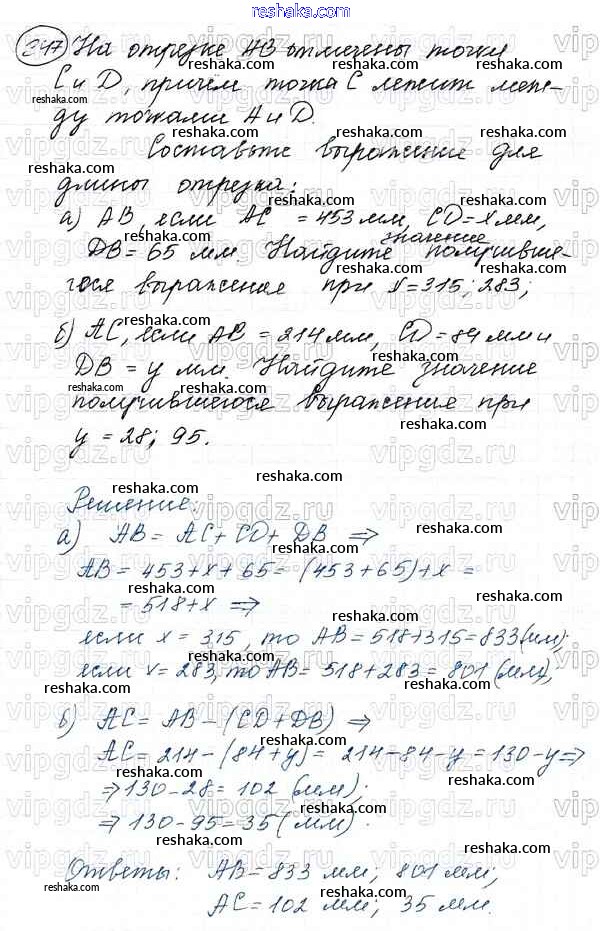 reshaka.com
247 На отрезке AB отмечены точки
C и D, причём точка C лежит меж-
ду точками A и D.
Составьте выражение для
длины отрезка:
а) AB, если AC = 453 мм, CD = x мм,
DB = 65 мм. Найдите значение получивше-
гося выражение при x = 315; 283;
б) AC, если AB = 214 мм, CD = 84 мм и
DB = y мм. Найдите значение
получившегося выражение при
y = 28; 95.
Решение:
а) AB = AC + CD + DB ⇒
AB = 453 + x + 65 = (453 + 65) + x =
= 518 + x ⇒
если x = 315, то AB = 518 + 315 = 833 (мм);
если x = 283, то AB = 518 + 283 = 801 (мм);
б) AC = AB - (CD + DB) ⇒
AC = 214 - (84 + y) = 214 - 84 - y = 130 - y ⇒
⇒ 130 - 28 = 102 (мм);
⇒ 130 - 95 = 35 (мм).
Ответы: AB = 833 мм; 801 мм;
AC = 102 мм; 35 мм.